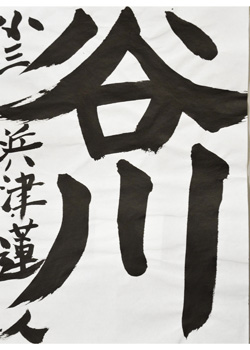 谷川
小三 浜津蓮人